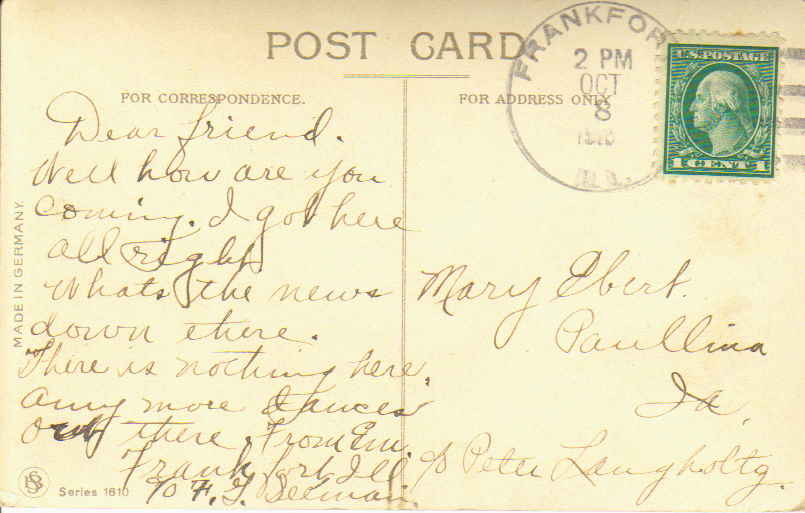 POST CARD
FOR CORRESPONDENCE.
FOR ADDRESS ONLY
FRANKFOR
2 PM
OCT
8
ILL.
U.S. POSTAGE
1 CENT 1
MADE IN GERMANY
Dear friend.
Well how are you
coming. I got here
all right
Whats the news
down there.
There is nothing here,
any more dances
out there. From Em.
Frankfort Ill.
c/o F. J.
Mary Ebert.
Paullina
Ia.
c/o Peter Langholtz.
Series 1610